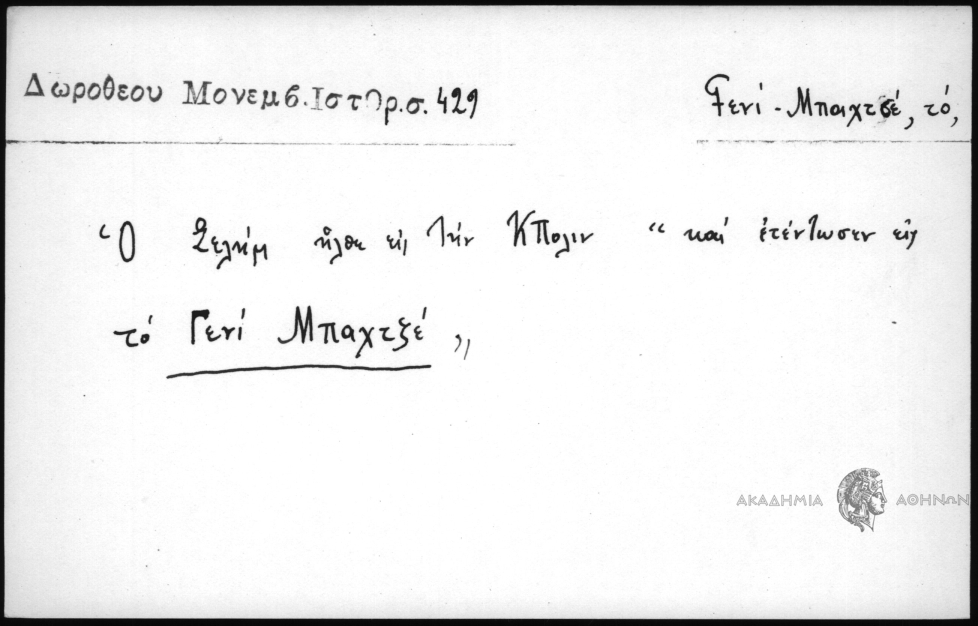 Δωροθεου Μονεμβ.Ιστορ.σ. 429
Γενί - Μπαχτσέ, τό,
Ὁ Σελήμ ἦλθε εἰς τήν ΚΠολιν “ καί ἐτέντωσεν εἰς
τό Γενί Μπαχτξέ „
ΑΚΑΔΗΜΙΑ ΑΘΗΝΩΝ